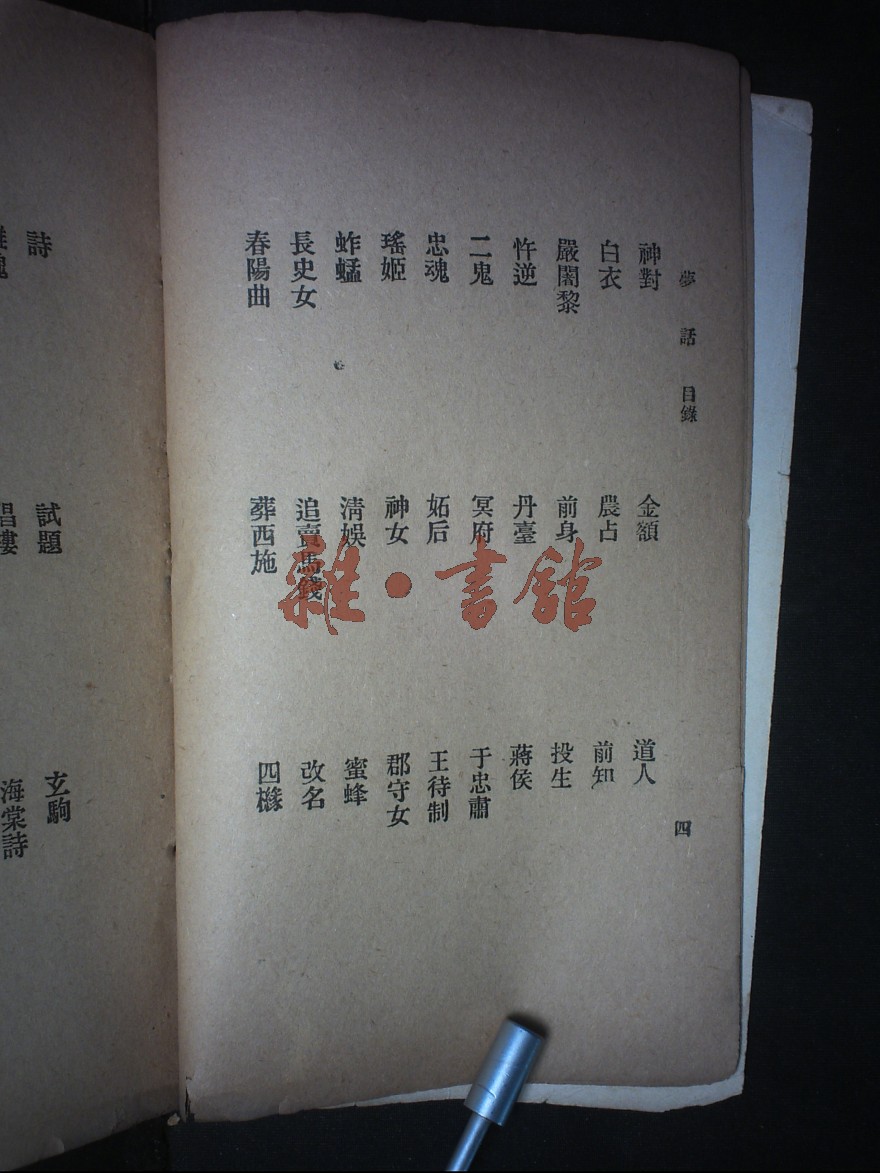 夢話 目錄
四
神對 金額 道人
白衣 農占 前知
嚴闍黎 前身 投生
忤逆 丹臺 蔣侯
二鬼 冥府 于忠肅
忠魂 妬后 王待制
瑤姬 神女 郡守女
蚱蜢 清娛 蜜蜂
長史女 追賣馬錢 改名
春陽曲 葬西施 四櫞
雜·書館
詩 試題 玄駒
海棠詩